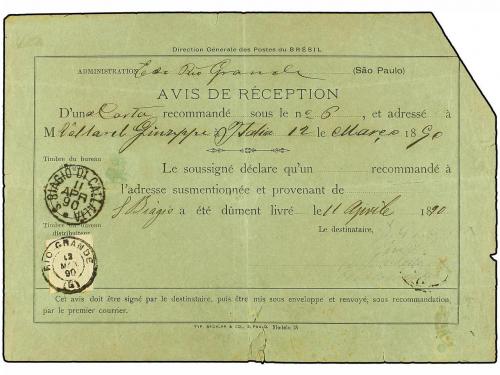 Direction Générale des Postes du BRÉSIL
ADMINISTRATION Rio Grande (São Paulo)
AVIS DE RÉCEPTION
D'un a Carta recommandé sous le nº 6, et adressé à
M Giuseppe Italia 12 le Março 1890
Timbre du bureau
Le soussigné déclare qu'un recommandé à
l'adresse susmentionnée et provenant de
S. BIAGIO DI CALLALTA
11
APR
90
S Biagio a été dûment livré le 11 Aprile 1890
Timbre du bureau
distributeur
Le destinataire,
RIO GRANDE
12
90
(G)
Cet avis doit être signé par le destinataire, puis être mis sous enveloppe et renvoyé, sous recommandation,
par le premier courrier.